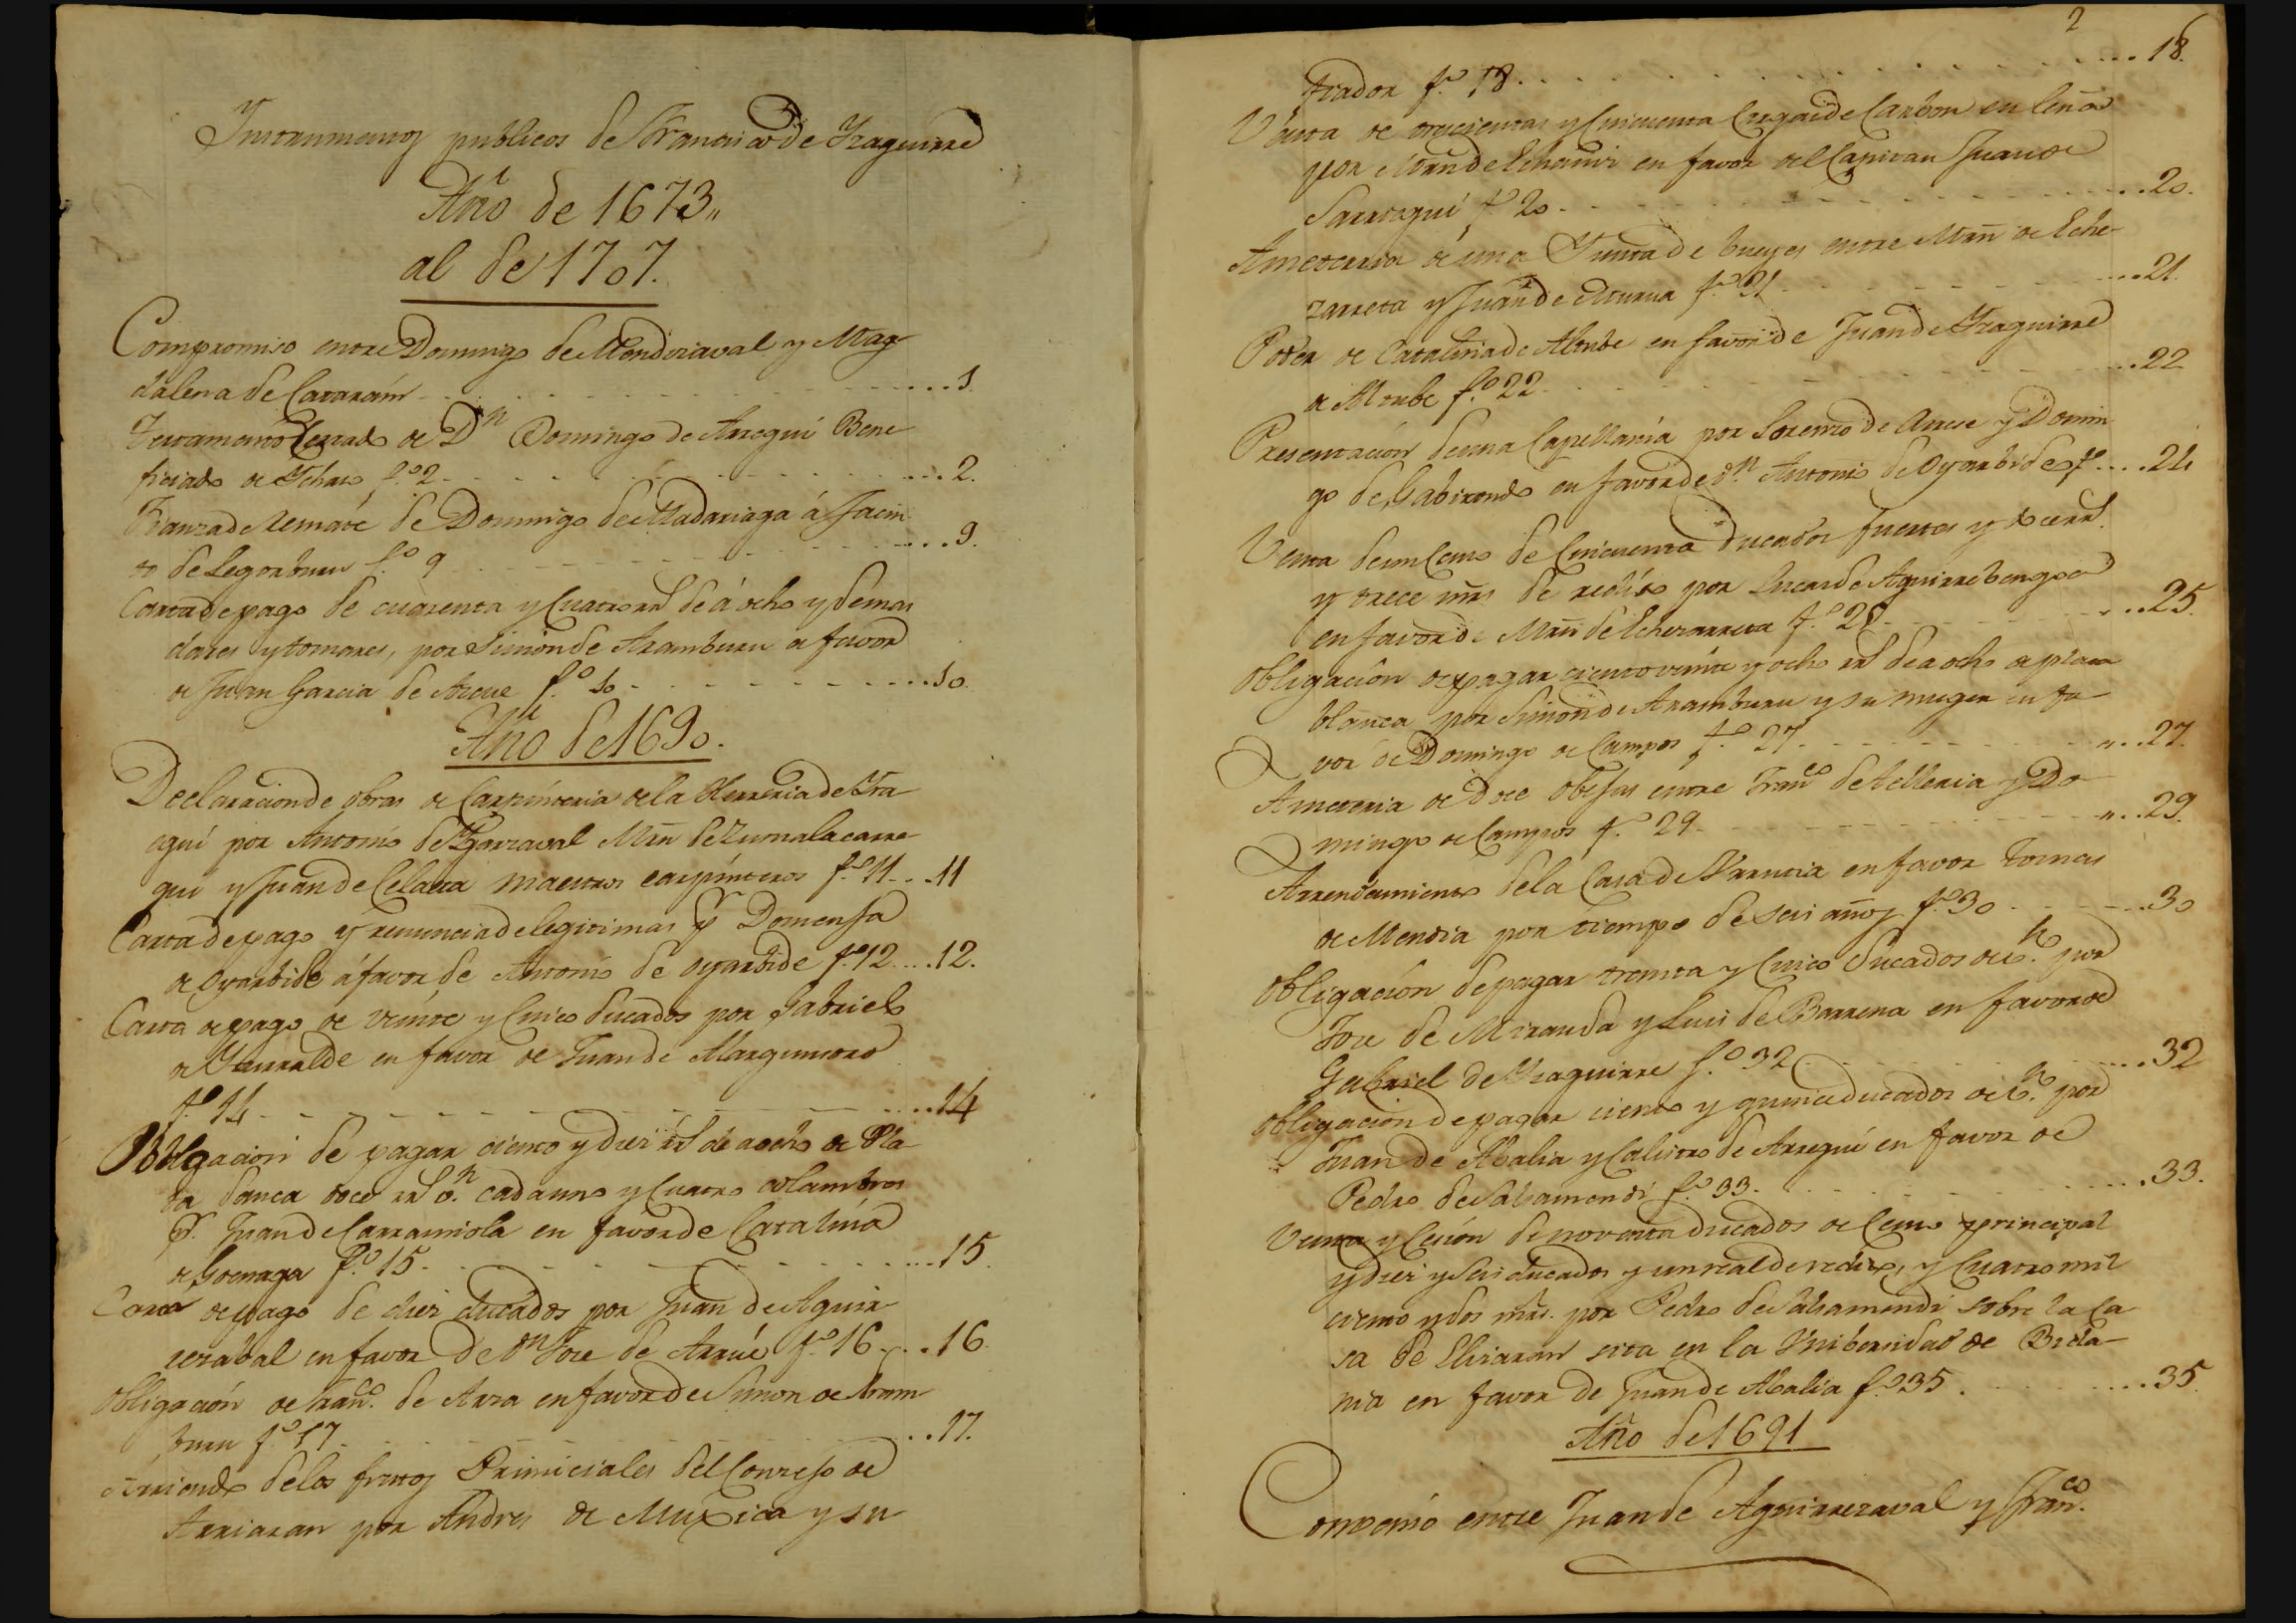 Instrumentos publicos de Francisco de Yzaguirre
Año de 1673,,
al de 1707.
Compromiso entre Domingo de Mendizaval y Mag-
dalena de Cararám ....1
Testamento Cerrado de Dn Domingo de Arregui Bene
ficiado de Ychaso fo. 2 ....2.
Fianza de Remate de Domingo de Madariaga á Jacin
to de Legorburu fo. 9 ....9.
Carta de pago de cuarenta y Cuatro rrs de á ocho y demas
dares y tomares, por Simon de Aramburu a favor
de Juan Garcia de Arcue fo. 10 ....10.
Año de 1690.
Declaracion de obras de Carpinteria de la Herreria de Yra-
egui por Antonio de Ygarzaval Mrn de Zumalacarre-
gui y Juan de Celaeta maestros carpinteros fo. 11 .. 11
Carta de pago y renuncia de legitimas pr Domensa
de Oyarbide á favor de Antonio de oyarbide fo. 12 ....12.
Carta de pago de veinte y Cinco ducados por Gabriel
de Yturralde en favor de Juan de Alargunsoro
fo. 14 ....14
Oblgacion de pagar ciento y diez rrs de a ocho de Pla-
ta blanca doce rrs vn. cada uno y Cuatro colambres
pr. Juan de Carramiola en favor de Catalina
de Goenaga fo. 15 ....15.
Carta de pago de diez ducados por Juan de Aguir-
rezabal en favor de Dn Jose de Arrúe fo. 16 ... 16.
Obligación de Franco. de Arza en favor de Simon de Aram-
buru fo. 17 ...17.
Arriendo de los frutos Primiciales del Conzejo de
Arriaran por Andres de Muxica y su
2
fiador fo. 18 ....18.
Venta de trescientas y Cincuenta Cargas de Carbon en leña
por Mrn de Echaniz en favor del Capitan Juan de
Sarroegui fo. 20 ....20.
Ameteria de una Yunta de bueyes entre Mrn de Eche-
zarreta y Juan de Aturua fo. 21 ....21.
Poder de Catalina de Alcube en favor de Juan de Yzaguirre
de Alcube fo. 22 ....22
Presentación de una Capellanía por Lorenzo de Arrese y Domin
go de Gabirondo en favor de Dn. Antonio de Oyarbide fo ....24
Venta de un Censo de Cincuenta ducados fuertes y
y trece mrs de redito por Lucas de Aguirrebengoa
en favor de Mrn de Echezarreta fo. 25 ....25.
Obligación de pagar ciento veinte y ocho rrs de a ocho de plata
blanca por Simon de Aramburu y su muger en fa-
vor de Domingo de Campos fo. 27 ....27.
Ameteria de doce obejas entre Franco de Aelleria y Do-
mingo de Campos fo. 29 ....29.
Arrendamiento de la Casa de Urrutia en favor Tomas
de Mendia por tiempo de seis años fo. 30 ....30
Obligación de pagar treinta y Cinco ducados de vn. por
Jose de Miranda y Luis de Barrena en favor de
Gabriel de Yzaguirre fo. 32 ....32
Obligacion de pagar ciento y quince ducados de vn. por
Juan de Abalia y Calistro de Arregui en favor de
Pedro de Sahamendi fo. 33 ....33.
Venta y Cesión de noventa ducados de Censo principal
y diez y seis ducados y un real de reditos, y Cuatro mil
ciento y dos mrs. por Pedro de Sahamendi sobre la Ca
sa de Elizaran sita en la Unibersidad de Bida-
nia en favor de Juan de Abalia fo. 35 ....35.
Año de 1691
Convenio entre Juan de Aguirrezaval y Franco.